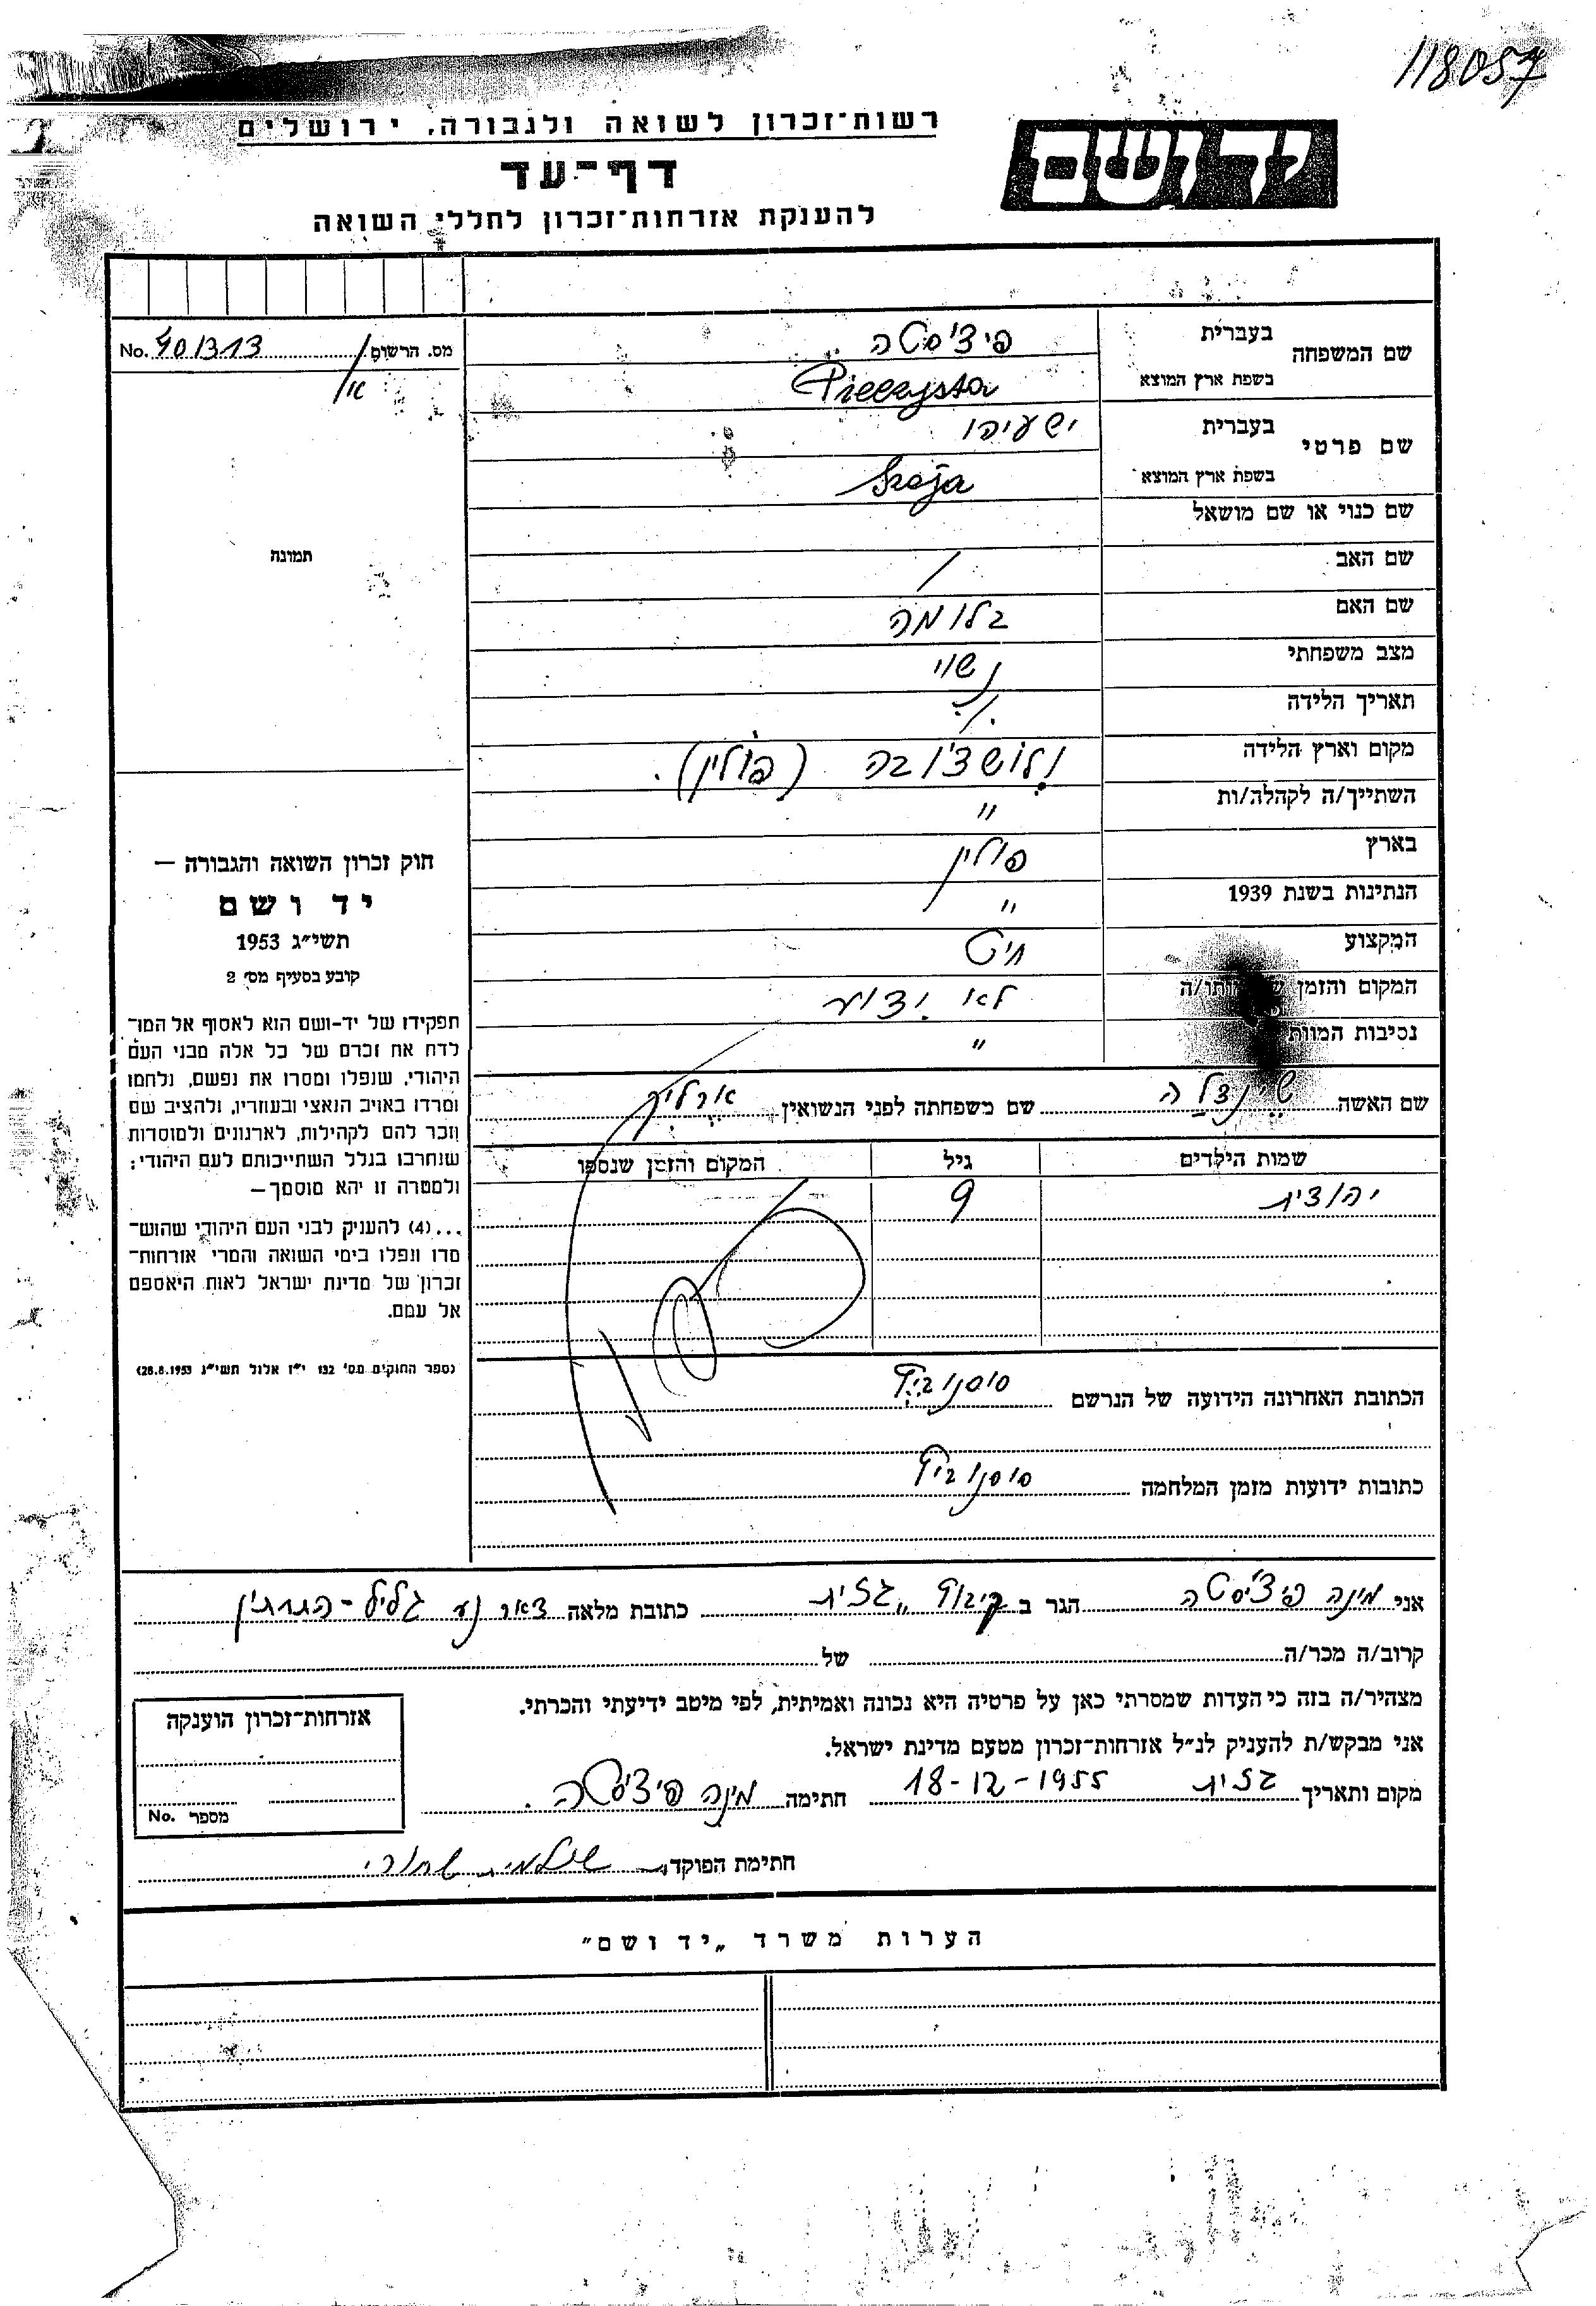 118057
רשות־זכרון לשואה ולגבורה, ירושלים
יד ושם
דף־עד
להענקת אזרחות־זכרון לחללי השואה
שם המשפחה בעברית פיצ'סטה
בשפת ארץ המוצא Pieczysta
מס. הרשום No. 401313
שם פרטי בעברית ישעיהו
בשפת ארץ המוצא Szaja
שם כנוי או שם מושאל
שם האב /
תמונה
שם האם בלומה
מצב משפחתי נשוי
תאריך הלידה
מקום וארץ הלידה ולושצ'ובה (פולין).
השתייך/ה לקהלה/ות "
בארץ פולין
הנתינות בשנת 1939 "
המקצוע חיט
המקום והזמן לא ידוע
נסיבות המוות "
שם האשה שיינדלה שם משפחתה לפני הנשואין
שמות הילדים גיל המקום והזמן שנספו
יהודית 9
הכתובת האחרונה הידועה של הנרשם סוסנוביץ
כתובות ידועות מזמן המלחמה סוסנוביץ
חוק זכרון השואה והגבורה —
יד ושם
תשי״ג 1953
קובע בסעיף מס׳ 2
תפקידו של יד-ושם הוא לאסוף אל המו־
לדת את זכרם של כל אלה מבני העם
היהודי, שנפלו ומסרו את נפשם, נלחמו
ומרדו באויב הנאצי ובעוזריו, ולהציב שם
וזכר להם לקהילות, לארגונים ולמוסדות
שנחרבו בגלל השתייכותם לעם היהודי;
ולמטרה זו יהא מוסמך—
...(4) להעניק לבני העם היהודי שהוש־
מדו ונפלו בימי השואה והמרי אזרחות־
זכרון של מדינת ישראל לאות היאספם
אל עמם.
(ספר החוקים מס׳ 132 י״ז אלול תשי״ג 28.8.1953)
אני מינה פיצ'יסטה הגר ב קיבוץ „גזית כתובת מלאה דאר נע גליל-התחתון
קרוב/ה מכר/ה של
מצהיר/ה בזה כי העדות שמסרתי כאן על פרטיה היא נכונה ואמיתית, לפי מיטב ידיעתי והכרתי.
אני מבקש/ת להעניק לנ״ל אזרחות־זכרון מטעם מדינת ישראל.
מקום ותאריך גזית 18-12-1955 חתימה מינה פיצ'יסטה.
אזרחות־זכרון הוענקה
מספר No.
חתימת הפוקד
הערות משרד „יד ושם״